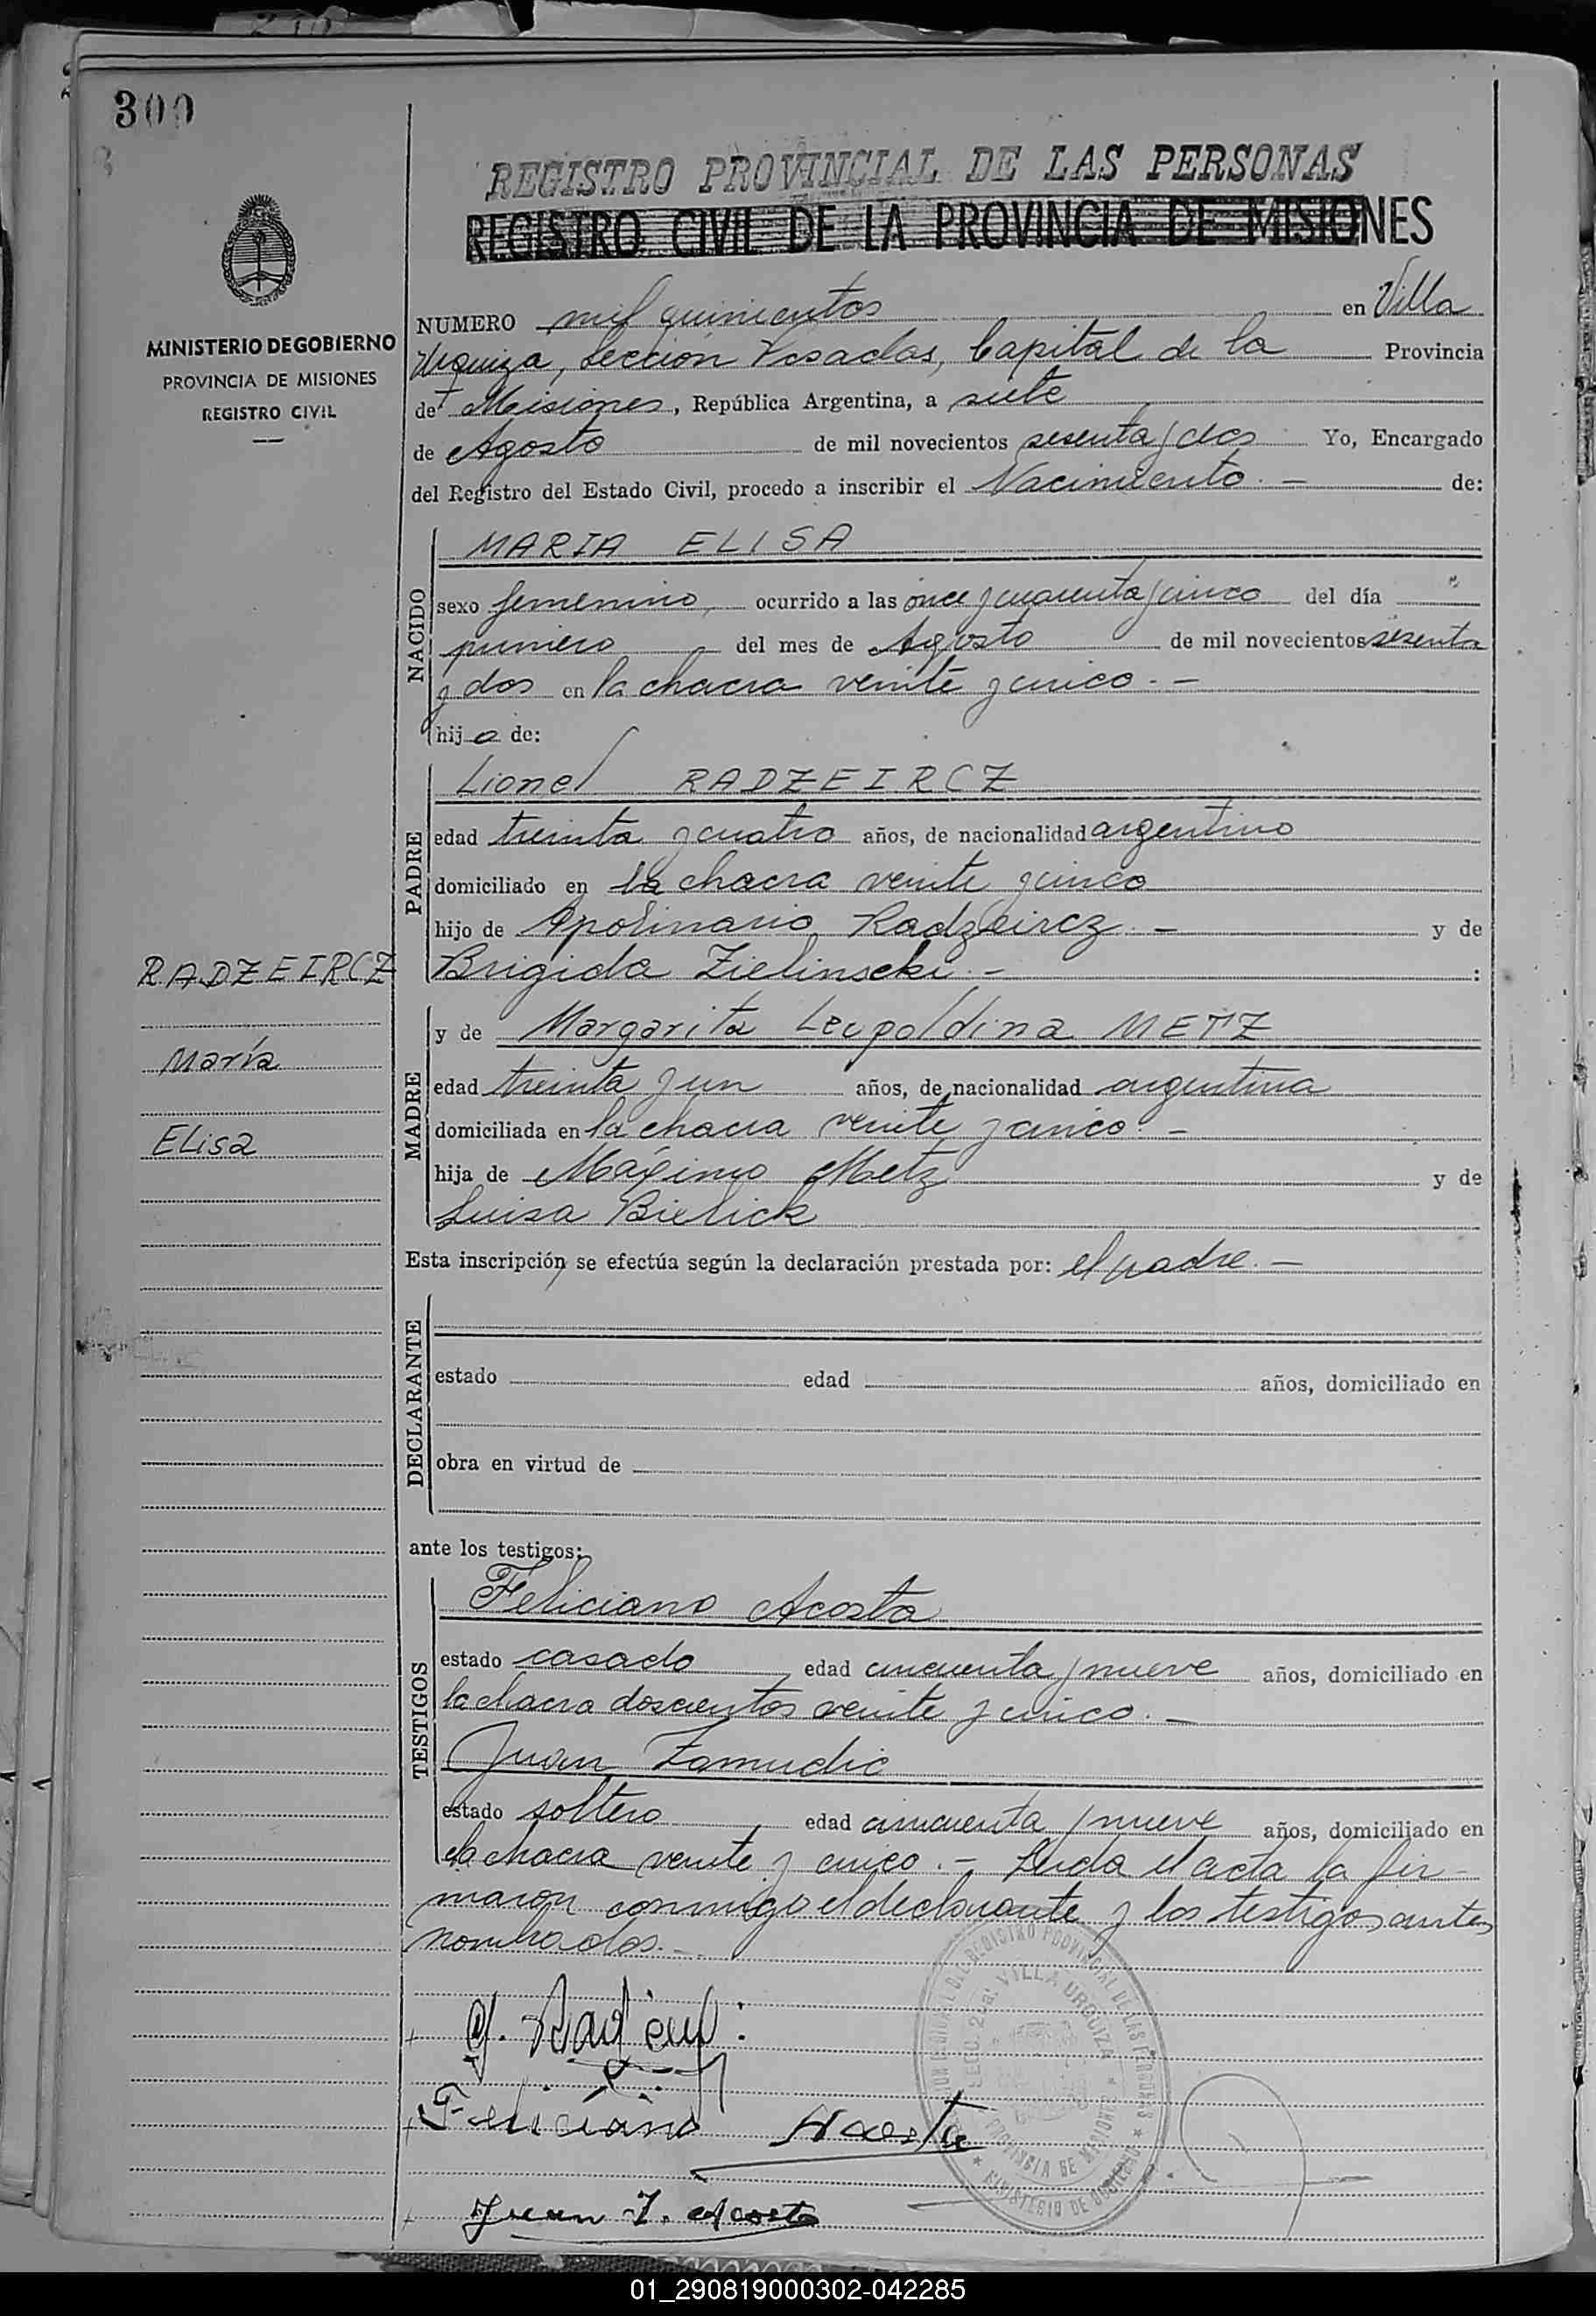 300
REGISTRO PROVINCIAL DE LAS PERSONAS
REGISTRO CIVIL DE LA PROVINCIA DE MISIONES
MINISTERIO DE GOBIERNO
PROVINCIA DE MISIONES
REGISTRO CIVIL
NUMERO mil quinientos en Villa
Urquiza, Sección Posadas, Capital de la Provincia
de Misiones, República Argentina, a siete
de Agosto de mil novecientos sesenta y dos Yo, Encargado
del Registro del Estado Civil, procedo a inscribir el Nacimiento. - de:
NACIDO
MARIA ELISA
sexo femenino, ocurrido a las once y cuarenta y cinco del día
primero del mes de Agosto de mil novecientos sesenta
y dos en la chacra veinte y cinco. -
hija de:
PADRE
Lionel RADZEIRCZ
edad treinta y cuatro años, de nacionalidad argentino
domiciliado en la chacra veinte y cinco
hijo de Apolinario Radzeircz. - y de
Brigida Zielinscki. - :
RADZEIRCZ
María
ELisa
MADRE
y de Margarita Leopoldina METZ
edad treinta y un años, de nacionalidad argentina
domiciliada en la chacra veinte y cinco. -
hija de Máximo Metz y de
Luisa Bielick
Esta inscripción se efectúa según la declaración prestada por: el padre. -
DECLARANTE
estado edad años, domiciliado en
obra en virtud de
ante los testigos:
TESTIGOS
Feliciano Acosta
estado casado edad cincuenta y nueve años, domiciliado en
la chacra doscientos veinte y cinco. -
Juan Zamudio
estado soltero edad cincuenta y nueve años, domiciliado en
la chacra veinte y cinco. - Leida el acta la fir-
maron conmigo el declarante y los testigos antes
nombrados. -
Feliciano Acosta
Juan Z. Acosta
SECC. 2da. VILLA URQUIZA
PROVINCIA DE MISIONES
MINISTERIO DE GOBIERNO
01_290819000302-042285